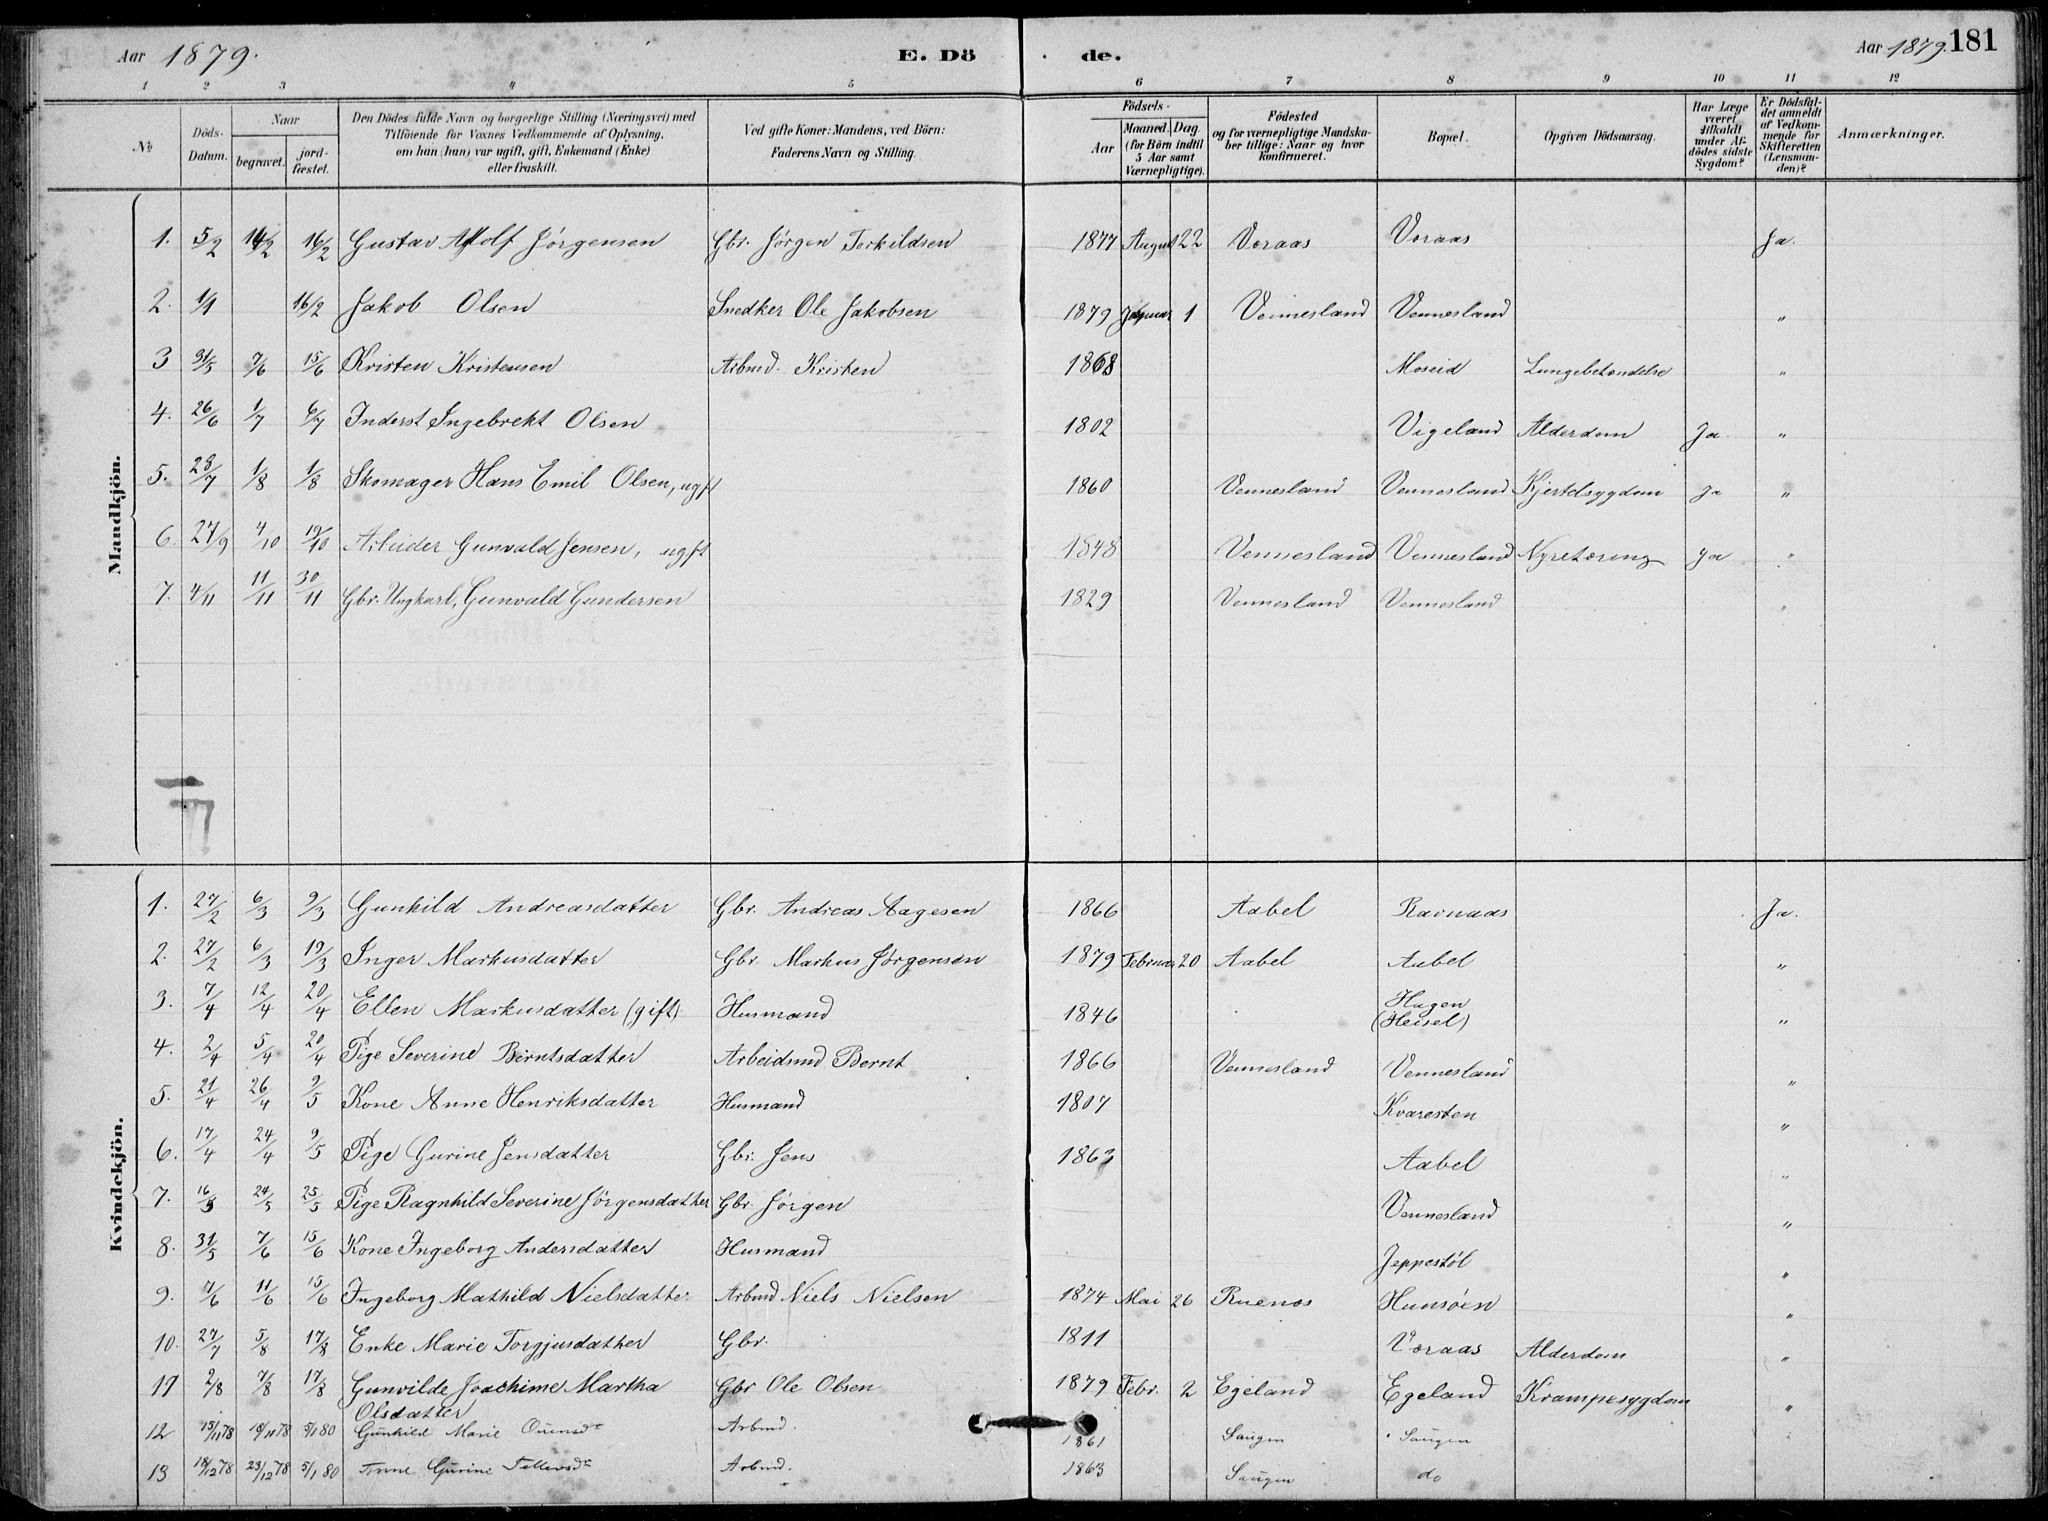 Aar 1879. E. Dö de. Aar 1879. 181
1 2 3 4 5 6 7 8 9 10 11 12
№ Döds-Datum. Naar begravet. jordfæstet. Den Dödes fulde Navn og borgerlige Stilling (Næringsvei) med Tilföiende for Voxnes Vedkommende af Oplysning, om han (hun) var ugift, gift, Enkemand (Enke) eller fraskilt. Ved gifte Koner: Mandens, ved Börn: Faderens Navn og Stilling. Födsels- Aar Maaned. Dag. (for Börn indtil 5 Aar samt Værnepligtige). Födested og for værnepligtige Mandskaber tillige: Naar og hvor konfirmeret. Bopæl. Opgiven Dödsaarsag. Har Læge været tilkaldt under Afdödes sidste Sygdom? Er Dödsfaldet anmeldt af Vedkommende for Skifteretten (Lensmanden)? Anmærkninger.
Mandkjön.
1. 5/2 14/2 16/2 Gustav Adolf Jörgensen Gbr. Jörgen Terkildsen 1877 August 22 Voraas Voraas Ja.
2. 1/1 16/2 Jakob Olsen Snedker Ole Jakobsen 1879 Januar 1 Vennesland Vennesland "
3 31/5 7/6 15/6 Kristen Kristensen Arbmd. Kristen 1868 Moseid Lungebetændelse "
4. 26/6 1/7 6/7 Inderst Ingebrekt Olsen 1802 Vigeland Alderdom Ja. "
5. 28/7 1/8 1/8 Skomager Hans Emil Olsen, ugft 1860 Vennesland Vennesland Kjertelsygdom Ja "
6. 27/9 4/10 19/10 Arbeider Gunvald Jensen, ugft 1848 Vennesland Vennesland Nyretæring Ja "
7. 4/11 11/11 30/11 Gbr. Ungkarl, Gunvald Gundersen 1829 Vennesland Vennesland "
Kvindekjön.
1. 27/2 6/3 9/3 Gunhild Andreasdatter Gbr. Andreas Aagesen 1866 Aabel Ravnaas Ja.
2. 27/2 6/3 19/3 Inger Markusdatter Gbr. Markus Jörgensen 1879 Februar 20 Aabel Aabel "
3. 7/4 12/4 20/4 Ellen Markusdatter (gift) Husmand 1846 Hagen (Heisel) "
4. 2/4 5/4 20/4 Pige Severine Berntsdatter Arbeidsmd Bernt 1866 Vennesland Vennesland "
5. 21/4 26/4 9/5 Kone Anne Henriksdatter Husmand 1807 Kvaresten "
6. 17/4 24/4 9/5 Pige Gurine Jensdatter Gbr. Jens 1863 Aabel "
7. 16/5 24/5 25/5 Pige Ragnhild Severine Jörgensdatter Gbr. Jörgen Vennesland "
8. 31/5 7/6 15/6 Kone Ingeborg Andersdatter Husmand Jeppestöl "
9. 7/6 11/6 15/6 Ingeborg Mathild Nielsdatter Arbmd Niels Nielsen 1874 Mai 26 Ruenes Hunsöen "
10. 27/7 5/8 17/8 Enke Marie Torgjusdatter Gbr. 1811 Voraas Alderdom "
11 2/8 7/8 17/8 Gunvilde Joachime Martha Olsdatter Gbr Ole Olsen 1879 Febr. 2 Egeland Egeland Krampesygdom "
12 15/11 78 18/11 78 5/1 80 Gunhild Marie Arbmd. 1861 Saugen Saugen "
13 18/12 78 23/12 78 5/1 80 Anne Gurine Arbmd. 1863 Saugen do